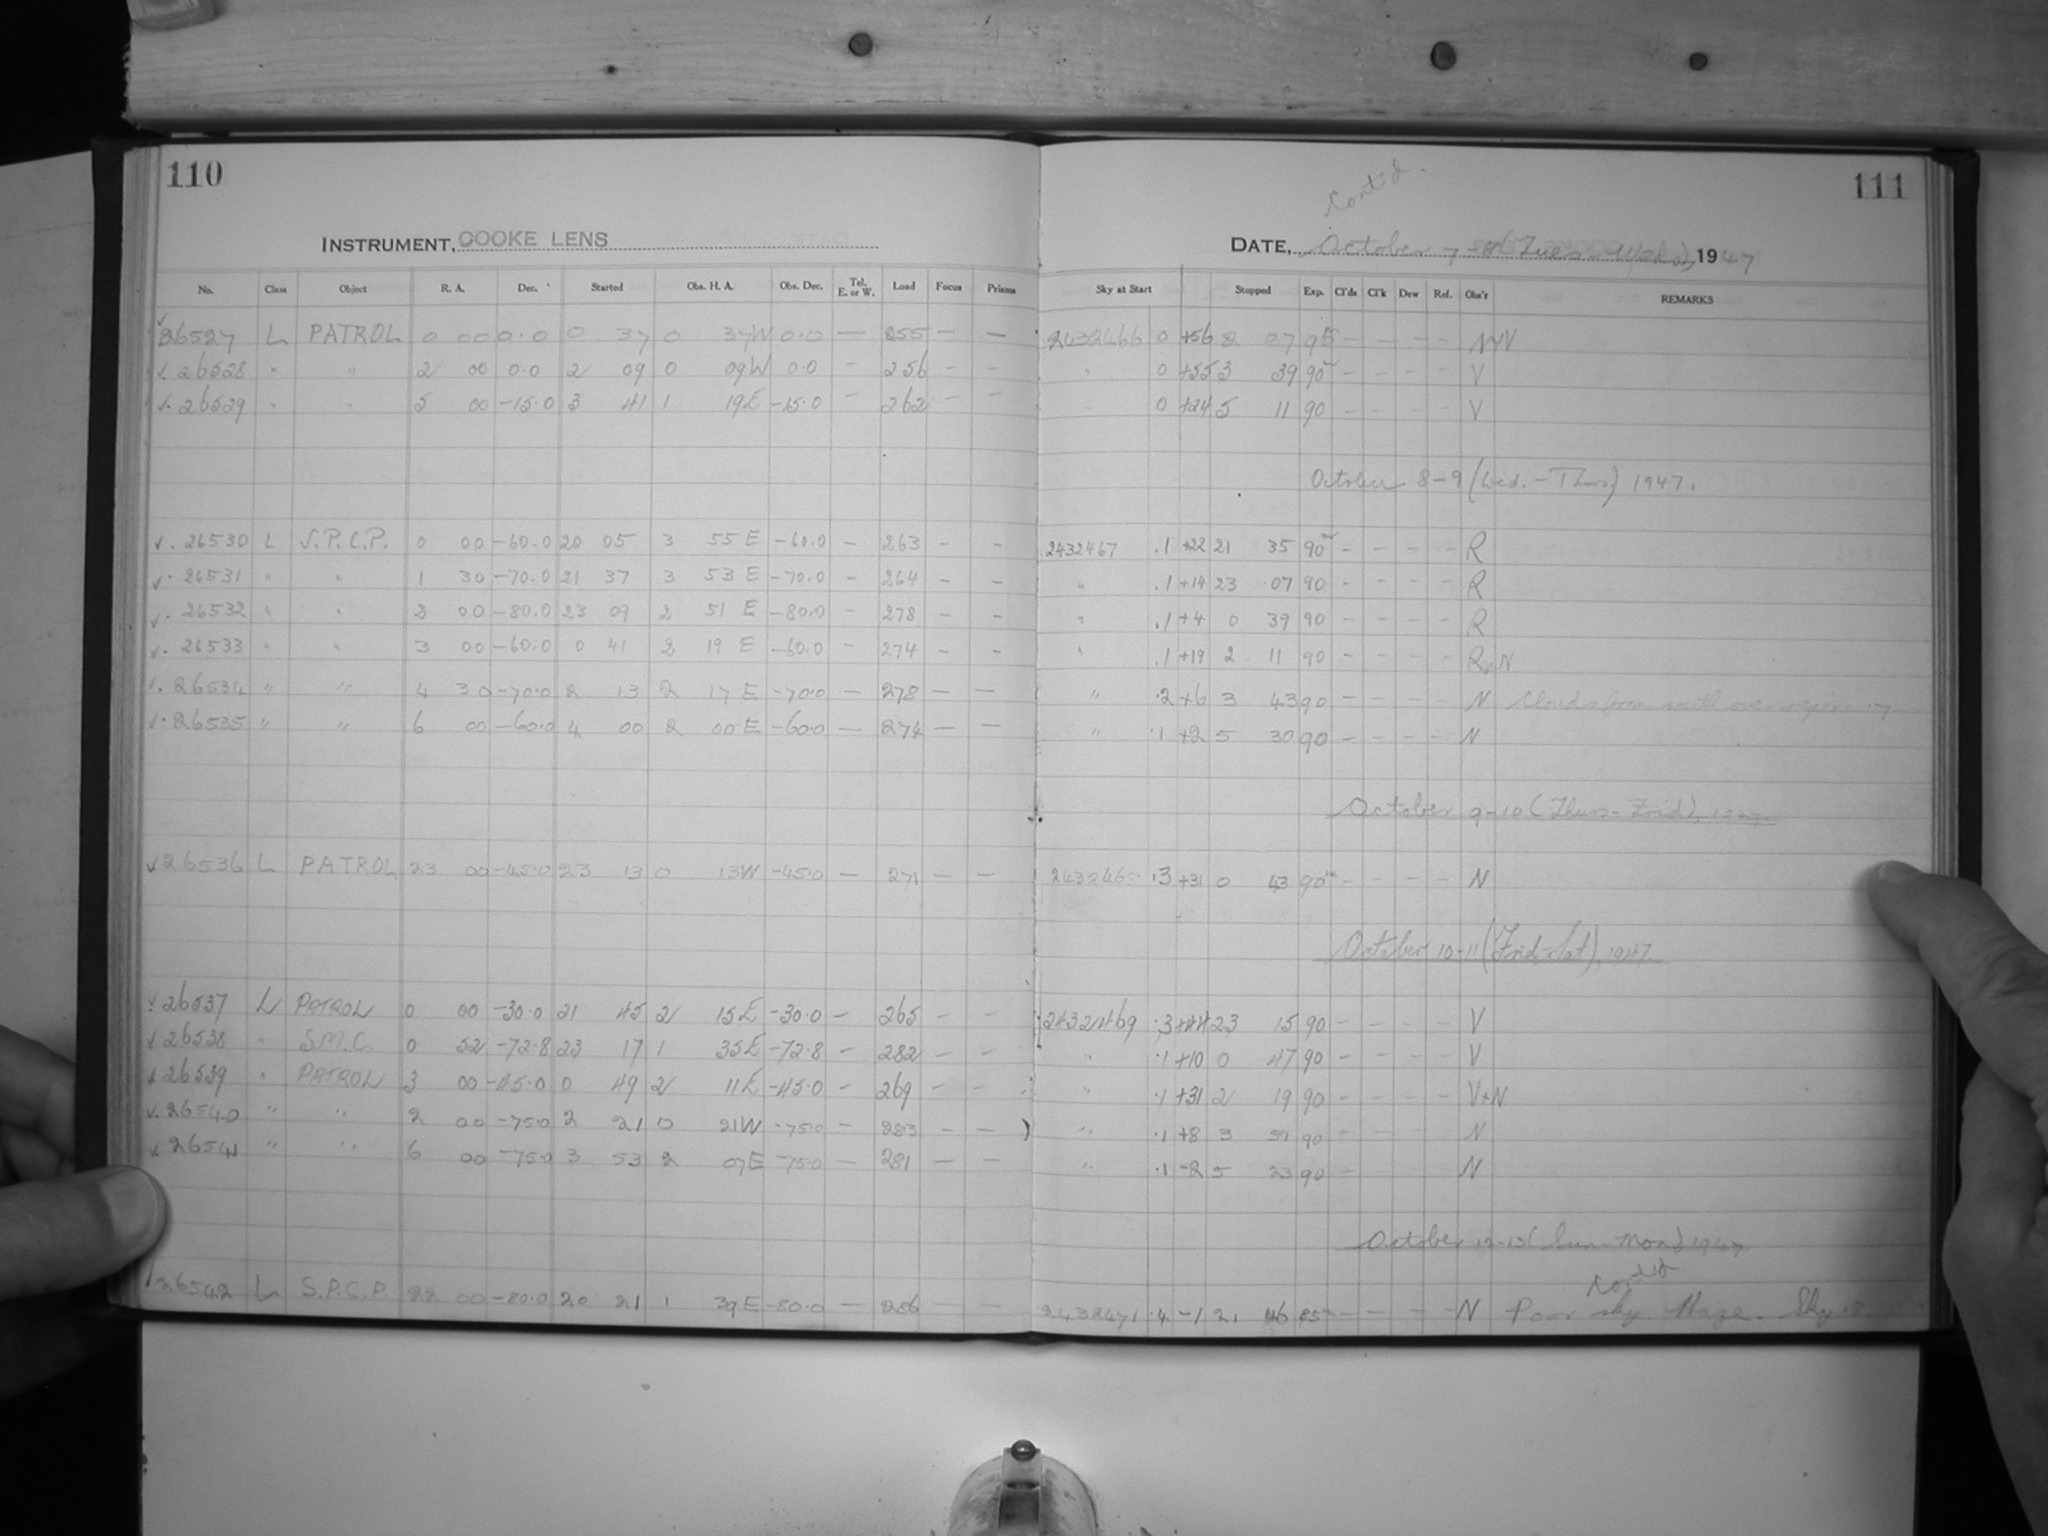 110
111
Cont'd.
INSTRUMENT, COOKE LENS
DATE, October 7-8 (Tues-Weds), 1947
No. Class Object R. A. Dec. Started Obs. H. A. Obs. Dec. Tel. E. or W. Load Focus Prisms Sky at Start Stopped Exp. Cl'ds Cl'k Dew Ref. Obs'r REMARKS
26527 L PATROL 0 00 0.0 0 37 0 37W 0.0 — 255 — — 2432466 0 +56 2 07 90 — — — — N+V
26528 " " 2 00 0.0 2 09 0 09W 0.0 — 256 — — " 0 +55 3 39 90 — — — — V
26529 " " 5 00 -15.0 3 41 1 19E -15.0 — 262 — — 0 +24 5 11 90 — — — — V
October 8-9 (Wed.-Thurs) 1947.
26530 L S.P.C.P. 0 00 -60.0 20 05 3 55 E -60.0 — 263 — — 2432467 .1 +22 21 35 90 — — — — R
26531 " " 1 30 -70.0 21 37 3 53 E -70.0 — 264 — — " .1 +14 23 07 90 — — — — R
26532 " " 2 00 -80.0 23 09 2 51 E -80.0 — 278 — — " .1 +4 0 39 90 — — — — R
26533 " " 3 00 -60.0 0 41 2 19 E -60.0 — 274 — — " .1 +19 2 11 90 — — — — R+N
26534 " " 4 30 -70.0 2 13 2 17 E -70.0 — 278 — — " .2 +6 3 43 90 — — — — N Clouds from south over region .7
26535 " " 6 00 -60.0 4 00 2 00 E -60.0 — 274 — — " .1 +2 5 30 90 — — — — N
October 9-10 (Thurs-Frid), 1947.
26536 L PATROL 23 00 -45.0 23 13 0 13W -45.0 — 271 — — .3 +31 0 43 90 — — — — N
October 10-11 (Frid-Sat), 1947.
26537 L PATROL 0 00 -30.0 21 45 2 15E -30.0 — 265 — — 2432469 .3 +44 23 15 90 — — — — V
26538 " S.M.C. 0 52 -72.8 23 17 1 35E -72.8 — 282 — — " .1 +10 0 47 90 — — — — V
26539 " PATROL 3 00 -45.0 0 49 2 11E -45.0 — 269 — — " .1 +31 2 19 90 — — — — V+N
26540 " " 2 00 -75.0 2 21 0 21W -75.0 — 283 — — " .1 +8 3 51 90 — — — — N
26541 " " 6 00 -75.0 3 53 2 07E -75.0 — 281 — — " .1 -2 5 23 90 — — — — N
October 12-13 (Sun-Mon) 1947
Cont'd
26542 L S.P.C.P 22 00 -80.0 20 21 1 39E -80.0 — 286 — — 2432471 .4 -1 21 46 85 — — — — N Poor sky. Haze. Sky